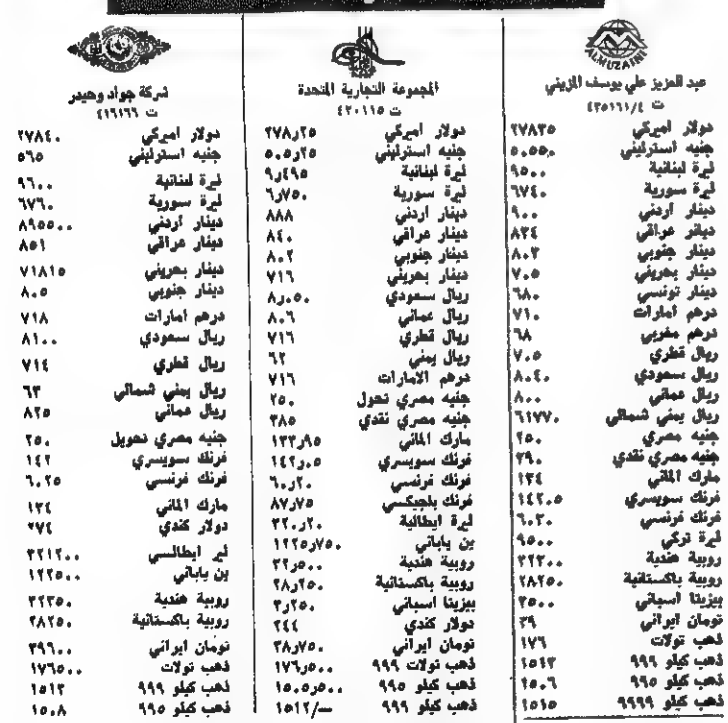 ALMUZAINI
عبد العزيز علي يوسف المزيني
ت ٤٣٥١٦١/٤
دولار اميركي ٢٧٨٣٥
جنيه استرليني ٥٠٥٥٠
ليرة لبنانية ٩٥٠٠
ليرة سورية ٦٧٤٠
دينار أردني ٩٠٠
دينار عراقي ٨٣٤
دينار جنوبي ٨٠٣
دينار بحريني ٧٠٥
دينار تونسي ٦٨٠
درهم امارات ٧١٠
درهم مغربي ٦٨
ريال قطري ٧٠٥
ريال سعودي ٨٠٤٠
ريال عماني ٨٠٠
ريال يمني شمالي ٦١٧٧٠
جنيه مصري ٢٥٠
جنيه مصري نقدي ٣٩٠
مارك الماني ١٣٤
فرنك سويسري ١٤٢٠٥
فرنك فرنسي ٦٠٣٠
ليرة تركي ٩٥٠٠
روبية هندية ٣٢٢٠٠
روبية باكستانية ٢٨٢٥٠
بيزيتا اسباني ٣٥٠٠
تومان ايراني ٣٩
ذهب تولات ١٧٦
ذهب كيلو ٩٩٩ ١٥١٣
ذهب كيلو ٩٩٥ ١٥٠٦
ذهب كيلو ٩٩٩٩ ١٥١٥
المجموعة التجارية المتحدة
ت ٤٣٠١١٥
دولار اميركي ٢٧٨٫٢٥
جنيه استرليني ٥٠٥٫٢٥
ليرة لبنانية ٩٫٤٩٥
ليرة سورية ٦٫٧٥٠
دينار أردني ٨٨٨
دينار عراقي ٨٤٠
دينار جنوبي ٨٠٢
دينار بحريني ٧١٦
ريال سعودي ٨٫٠٥٠
ريال عماني ٨٠٦
ريال قطري ٧١٦
ريال يمني ٦٢
درهم الامارات ٧١٦
جنيه مصري تحول ٢٥٠
جنيه مصري نقدي ٣٨٥
مارك الماني ١٣٣٫٩٥
فرنك سويسري ١٤٢٫٠٥
فرنك فرنسي ٦٠٫٢٠
فرنك بلجيكسي ٨٧٫٧٥
ليرة ايطالية ٢٢٠٫٢٠
ين ياباني ١٢٢٥٫٧٥٠
روبية هندية ٢٢٫٥٠٠
روبية باكستانية ٢٨٫٢٥٠
بيزيتا اسباني ٣٫٢٥٠
دولار كندي ٢٤٤
تومان ايراني ٣٨٫٧٥٠
ذهب تولات ٩٩٩ ١٧٦٫٥٠٠
ذهب كيلو ٩٩٥ ١٥٠٥٫٥٠٠
ذهب كيلو ٩٩٩ ١٥١٢/—
شركة جواد وحيدر
ت ٤١٦١٦٦
دولار اميركي ٢٧٨٤٠
جنيه استرليني ٥٦٥
ليرة لبنانية ٩٦٠٠
ليرة سورية ٦٧٦٠
دينار أردني ٨٩٥٥٠٠
دينار عراقي ٨٥١
دينار بحريني ٧١٨١٥
دينار جنوبي ٨٠٥
درهم امارات ٧١٨
ريال سعودي ٨١٠٠
ريال قطري ٧١٤
ريال يمني شمالي ٦٣
ريال عماني ٨٢٥
جنيه مصري تحويل ٢٥٠
فرنك سويسري ١٤٢
فرنك فرنسي ٦٠٢٥
مارك الماني ١٣٤
دولار كندي ٢٧٤
لير ايطالسي ٢٢١٢٠٠
ين ياباني ١٢٢٥٠٠
روبية هندية ٢٢٣٥٠
روبية باكستانية ٢٨٢٥٠
تومان ايراني ٣٩٦٠٠
ذهب تولات ١٧٦٥٠٠
ذهب كيلو ٩٩٩ ١٥١٢
ذهب كيلو ٩٩٥ ١٥٠٨